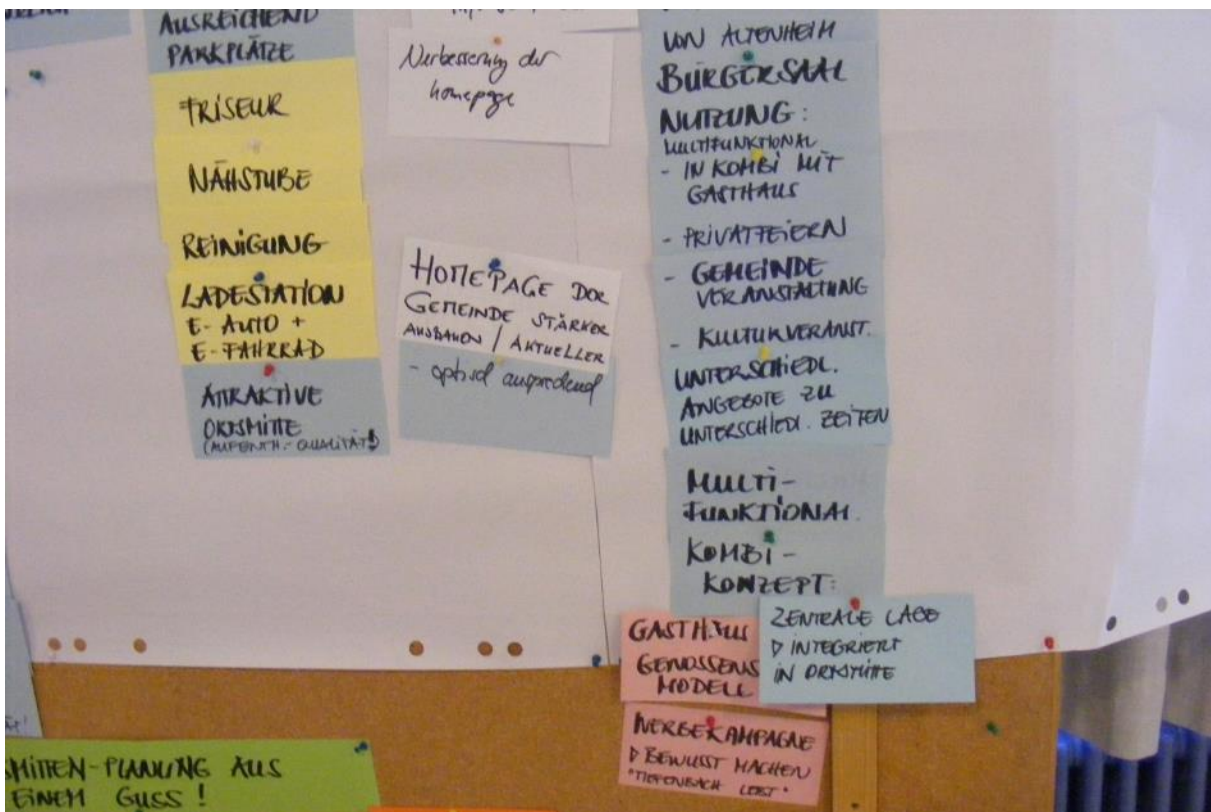 AUSREICHEND
PARKPLÄTZE
FRISEUR
NÄHSTUBE
REINIGUNG
LADESTATION
E-AUTO +
E-FAHRRAD
ATTRAKTIVE
ORTSMITTE
(AUFENTH.-QUALITÄT!)
Verbesserung der
homepage
HOMEPAGE DER
GEMEINDE STÄRKER
AUSBAUEN / AKTUELLER
- optisch ansprechend
VON ALTENHEIM
BÜRGERSAAL
NUTZUNG:
MULTIFUNKTIONAL
- IN KOMBI MIT
GASTHAUS
- PRIVATFEIERN
- GEMEINDE
VERANSTALTUNG
- KULTURVERANST.
UNTERSCHIEDL.
ANGEBOTE ZU
UNTERSCHIEDL. ZEITEN
MULTI-
FUNKTIONAL
KOMBI-
KONZEPT:
GASTHAUS
GENOSSENS
MODELL
ZENTRALE LAGE
▷ INTEGRIERT
IN ORTSMITTE
WERBEKAMPAGNE
▷ BEWUSST MACHEN
"TIEFENBACH LEBT"
SMITTEN-PLANUNG AUS
EINEM GUSS!